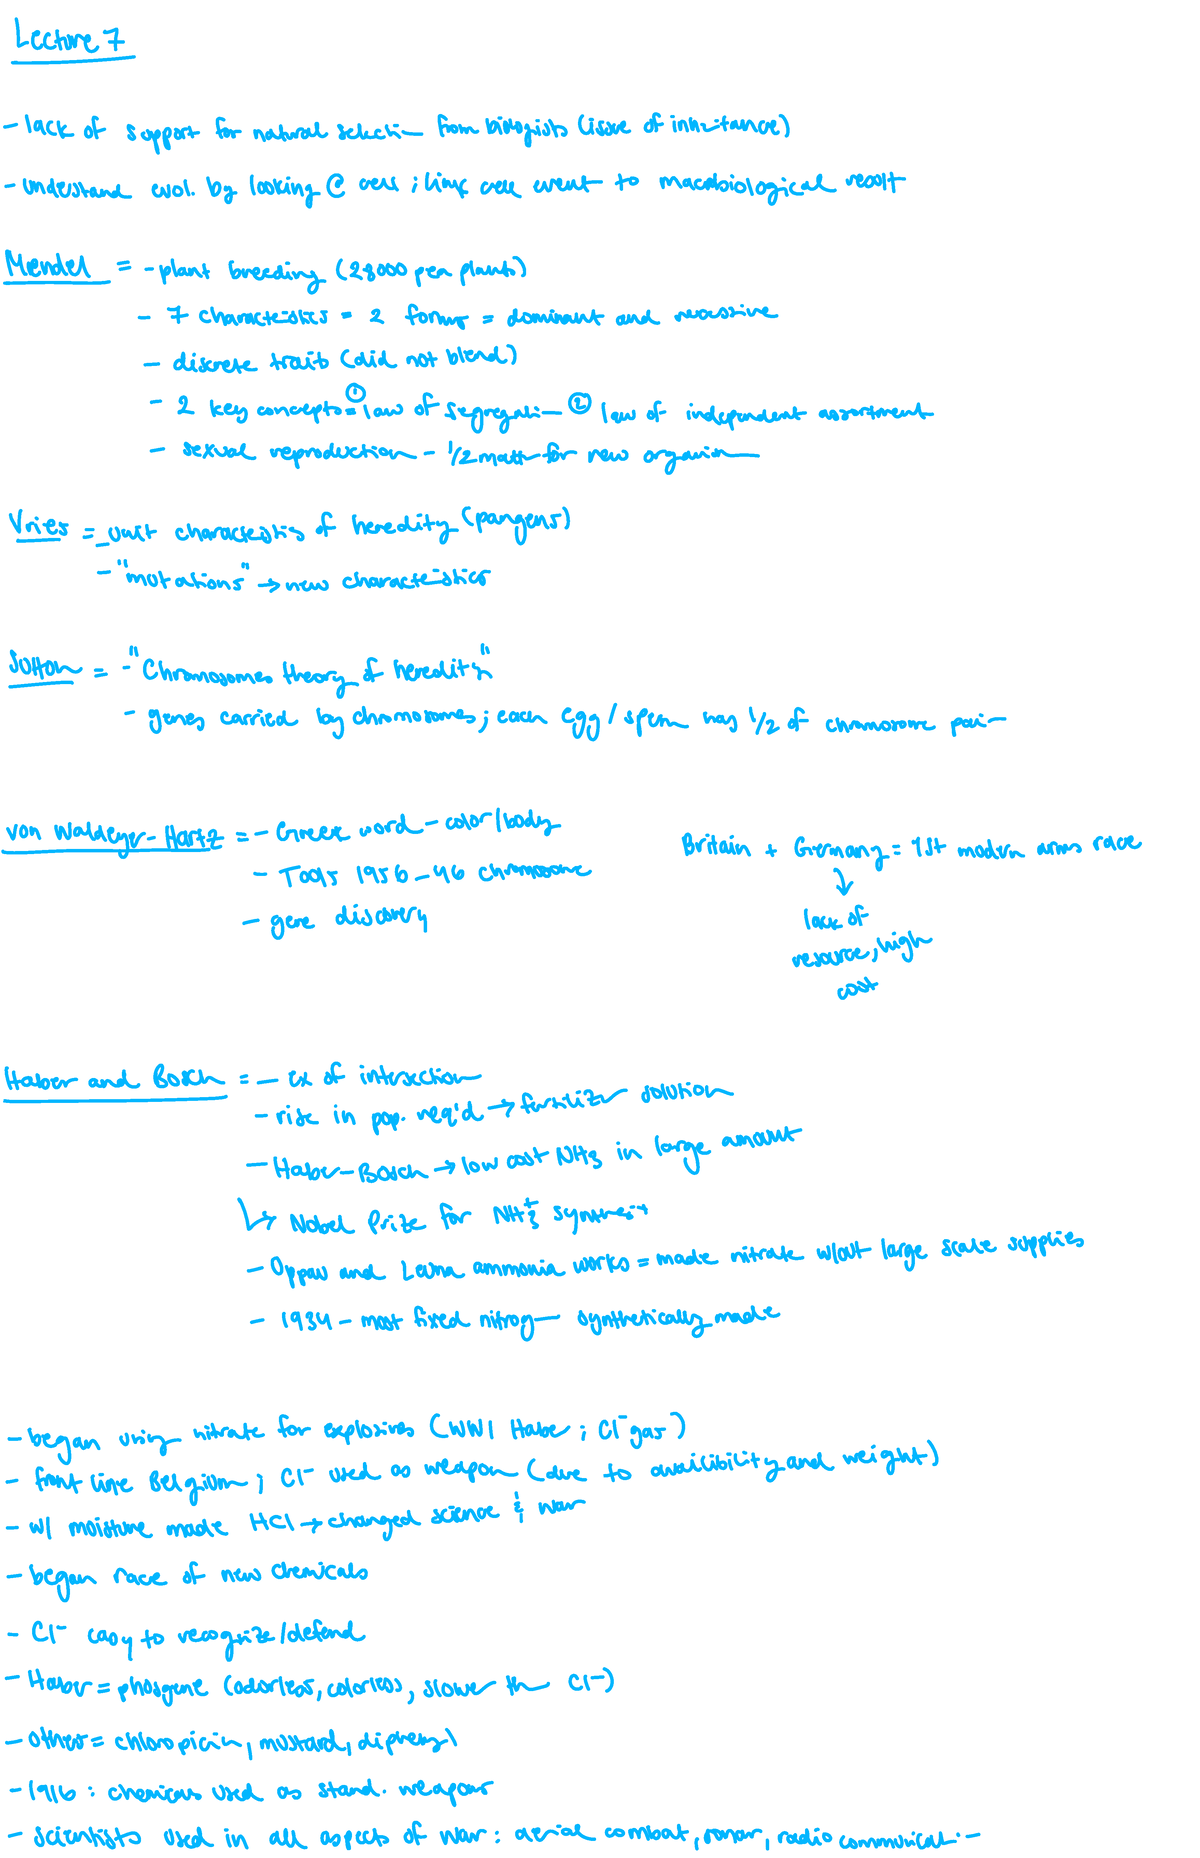 Lecture 7
- lack of support for natural selection from biologists (issue of inheritance)
- understand evol. by looking @ cell ; link cell event to macrobiological result
Mendel = - plant breeding (28000 pea plants)
- 7 characteristics = 2 forms = dominant and recessive
- discrete traits (did not blend)
- 2 key concepts = ① law of segregation ② law of independent assortment
- sexual reproduction - 1/2 matter for new organism
Vries = - unit characteristics of heredity (pangens)
- "mutations" → new characteristics
Sutton = - "Chromosomes theory of heredity"
- genes carried by chromosomes; each egg / sperm has 1/2 of chromosome pair
von Waldeyer-Hartz = - Greek word - color/body
- Today 1956 - 46 chromosome
- gene discovery
Britain + Germany = 1st modern arms race
↓
lack of
resource, high
cost
Haber and Bosch = - ex of intersection
- rise in pop. req'd → fertilizer solution
- Haber-Bosch → low cost NH3 in large amount
↳ Nobel Prize for NH3 synthesis
- Oppau and Leuna ammonia works = made nitrate w/out large scale supplies
- 1934 - most fixed nitrogen synthetically made
- began using nitrate for explosives (WW1 Haber ; Cl⁻ gas)
- front line Belgium ; Cl⁻ used as weapon (due to availibility and weight)
- w/ moisture made HCl → changed science & war
- began race of new chemicals
- Cl⁻ easy to recognize/defend
- Haber = phosgene (odorless, colorless, slower than Cl⁻)
- other = chloropicrin, mustard, diphenyl
- 1916 : chemicals used as stand. weapons
- scientists used in all aspects of war : aerial combat, sonar, radio communication